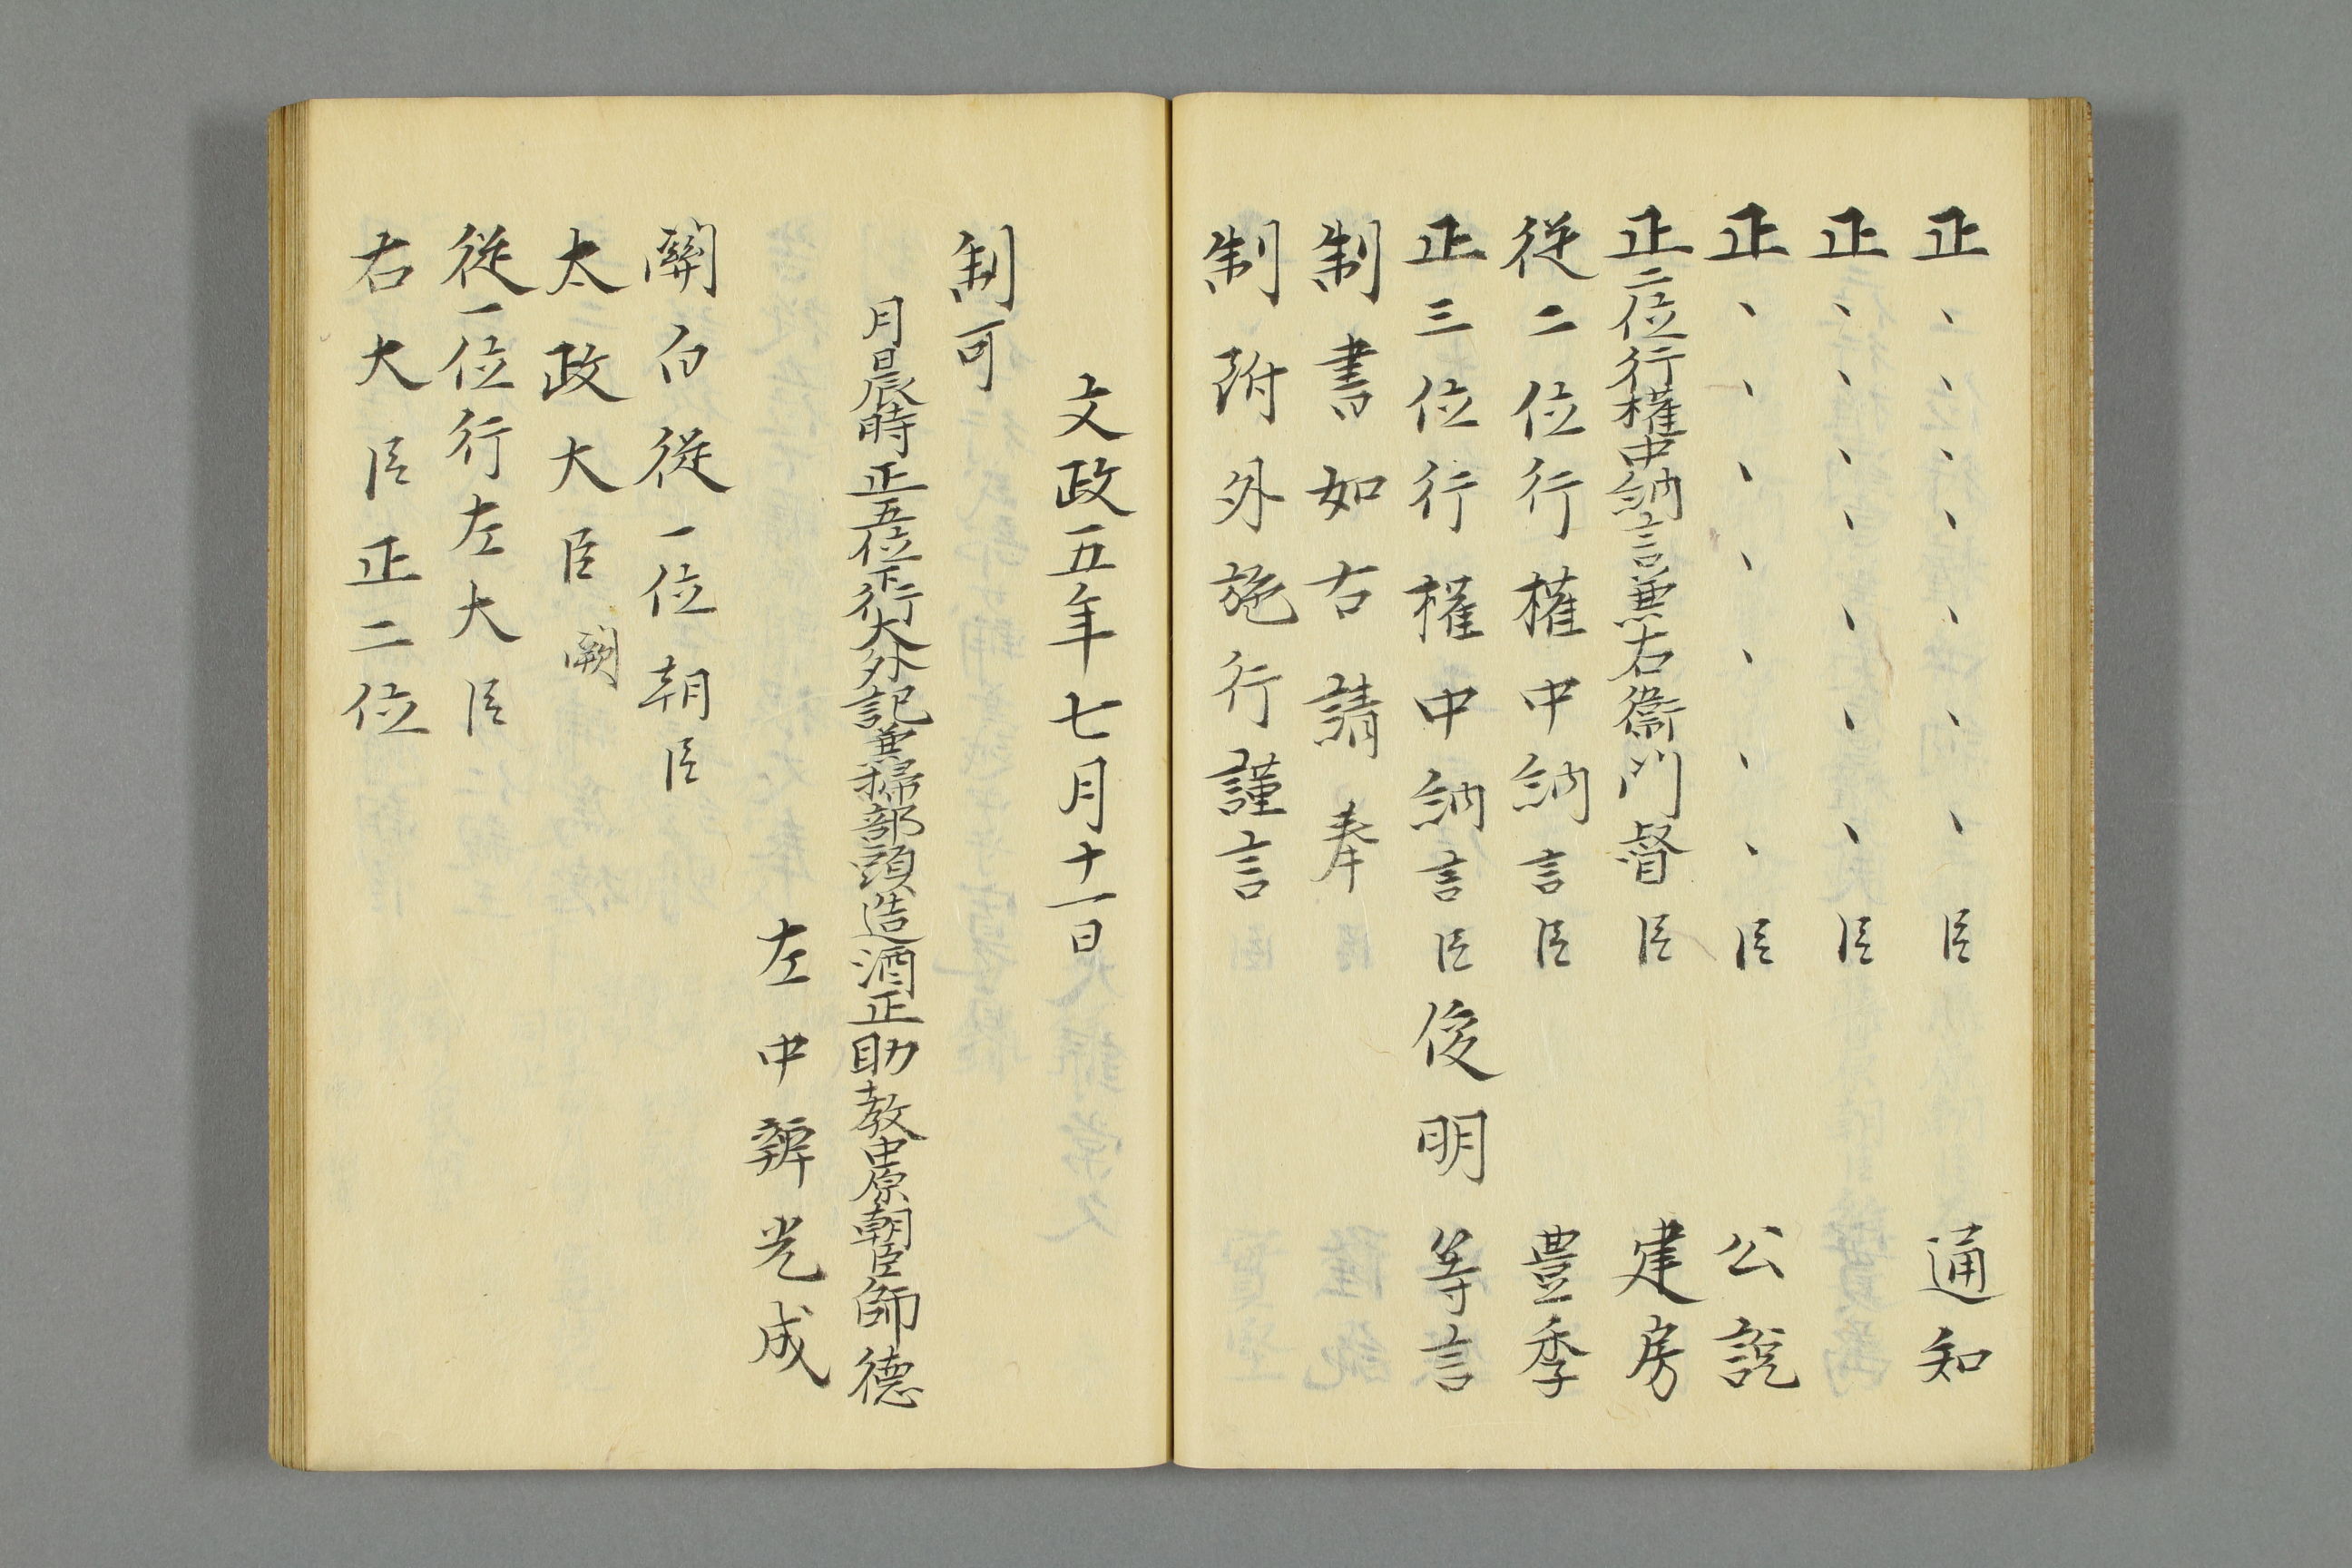 正、、、、、、臣 通知
正、、、、、、臣
正、、、、、、、臣 公説
正二位行権中納言兼右衞門督臣 建房
従二位行権中納言臣 豊季
正三位行権中納言臣俊明 等言
制書如右請奉
制附外施行謹言
文政五年七月十一日
制可
月日辰時 正五位下行大外記兼掃部頭造酒正助教中原朝臣師德
左中辨光成
關白従一位朝臣
太政大臣 闕
従一位行左大臣
右大臣正二位